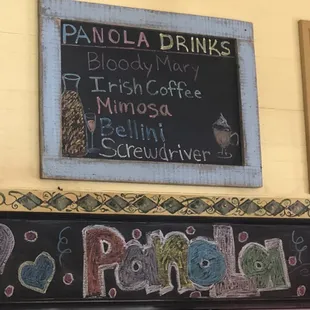 PANOLA DRINKS
Bloody Mary
Irish Coffee
Mimosa
Bellini
Screwdriver
Panola